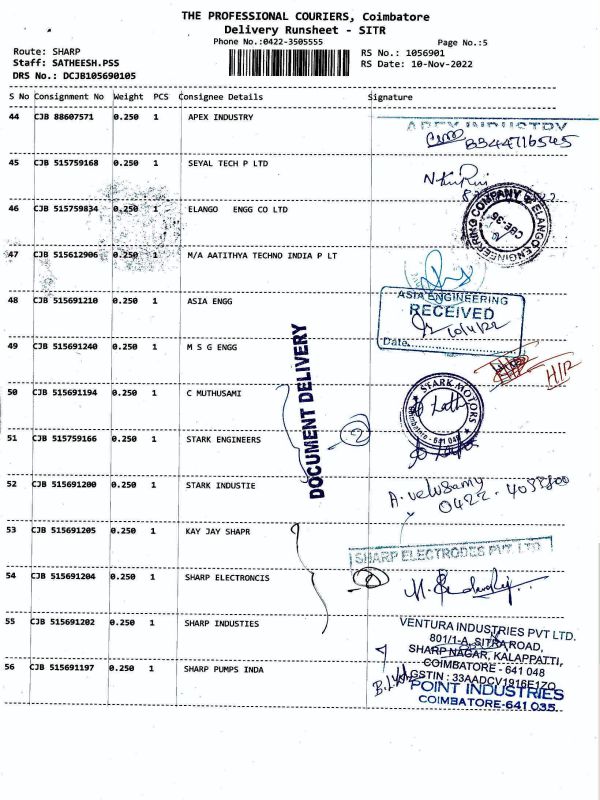 THE PROFESSIONAL COURIERS, Coimbatore
Delivery Runsheet - SITR
Phone No.:0422-3505555 Page No.:5
Route: SHARP RS No.: 1056901
Staff: SATHEESH.PSS RS Date: 10-Nov-2022
DRS No.: DCJB105690105
S No Consignment No Weight PCS Consignee Details Signature
44 CJB 88607571 0.250 1 APEX INDUSTRY
APEX INDUSTRY
45 CJB 515759168 0.250 1 SEYAL TECH P LTD
46 CJB 515759834 0.250 1 ELANGO ENGG CO LTD
ELANGO ENGINEERING COMPANY
CBE-36
47 CJB 515612906 0.250 1 M/A AATITHYA TECHNO INDIA P LT
48 CJB 515691210 0.250 1 ASIA ENGG
ASIA ENGINEERING
RECEIVED
Date
49 CJB 515691240 0.250 1 M S G ENGG
H/R
50 CJB 515691194 0.250 1 C MUTHUSAMI
STARK MOTORS
Coimbatore - 641 048
DOCUMENT DELIVERY
2
51 CJB 515759166 0.250 1 STARK ENGINEERS
52 CJB 515691200 0.250 1 STARK INDUSTIE
A. velusamy
53 CJB 515691205 0.250 1 KAY JAY SHAPR
SHARP ELECTRODES PVT LTD
54 CJB 515691204 0.250 1 SHARP ELECTRONCIS
55 CJB 515691202 0.250 1 SHARP INDUSTIES
VENTURA INDUSTRIES PVT LTD.
801/1-A, SITRA ROAD,
SHARP NAGAR, KALAPPATTI,
COIMBATORE - 641 048
GSTIN : 33AADCV1916E1ZO
56 CJB 515691197 0.250 1 SHARP PUMPS INDA
POINT INDUSTRIES
COIMBATORE-641 035.